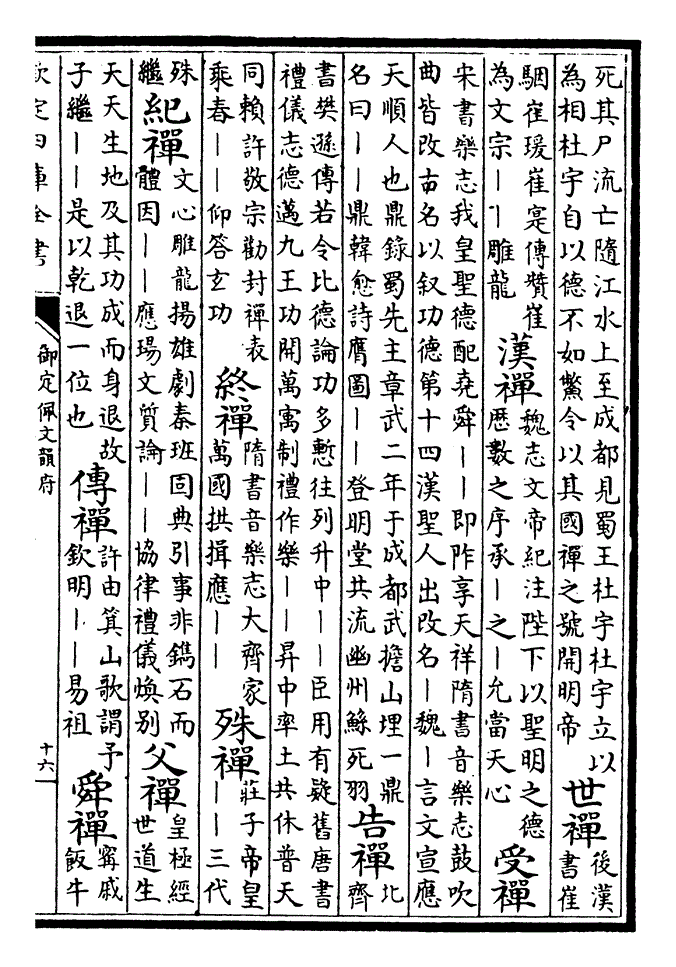 死其尸流亡隨江水上至成都見蜀王杜宇杜宇立以
為相杜宇自以德不如鱉令以其國禪之號開明帝
世禪
後漢
書崔
駰崔瑗崔寔傳贊崔
為文宗丨丨雕龍
漢禪
魏志文帝紀注陛下以聖明之德
歷數之序承丨之丨允當天心
受禪
宋書樂志我皇聖德配堯舜丨丨即阼享天祥隋書音樂志鼓吹
曲皆改古名以叙功德第十四漢聖人出改名丨魏丨言文宣應
天順人也鼎錄蜀先主章武二年于成都武擔山埋一鼎
名曰丨丨鼎韓愈詩膺圖丨丨登明堂共流幽州鯀死羽
告禪
北
齊
書樊遜傳若令比德論功多慙往列升中丨丨臣用有疑舊唐書
禮儀志德邁九王功開萬寓制禮作樂丨丨昇中率土共休普天
同賴許敬宗勸封禪表
乘春丨丨仰答玄功
終禪
隋書音樂志大齊家
萬國拱揖應丨丨
殊禪
莊子帝皇
丨丨三代
殊
繼
紀禪
文心雕龍揚雄劇秦班固典引事非鐫石而
體因丨丨應瑒文質論丨丨協律禮儀煥别
父禪
皇極經
世道生
天天生地及其功成而身退故
子繼丨丨是以乾退一位也
傳禪
許由箕山歌謂予
欽明丨丨易祖
舜禪
甯戚
飯牛
欽定四庫全書
御定佩文韻府
十六